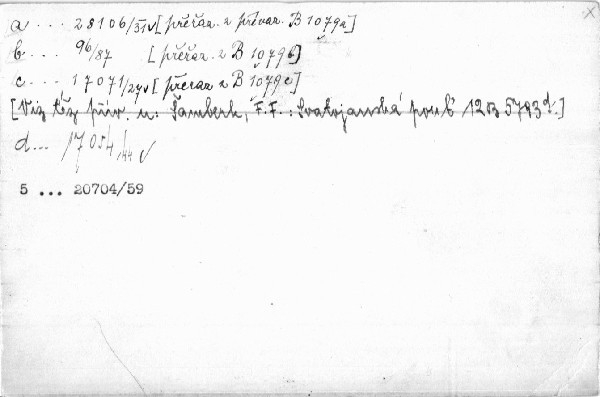 a ... 28106/31 v [přeřaz. z převaz. B 1079a]
b ... 96/87 [přeřaz. z B 1079b]
c ... 17071/27 v [přeřaz z B 1079c]
[Viz též přív. u: Šamberk, F.F.: Svatojanská pouť 12 B 5793 d.]
d ... 17054/44 v
5 ... 20704/59